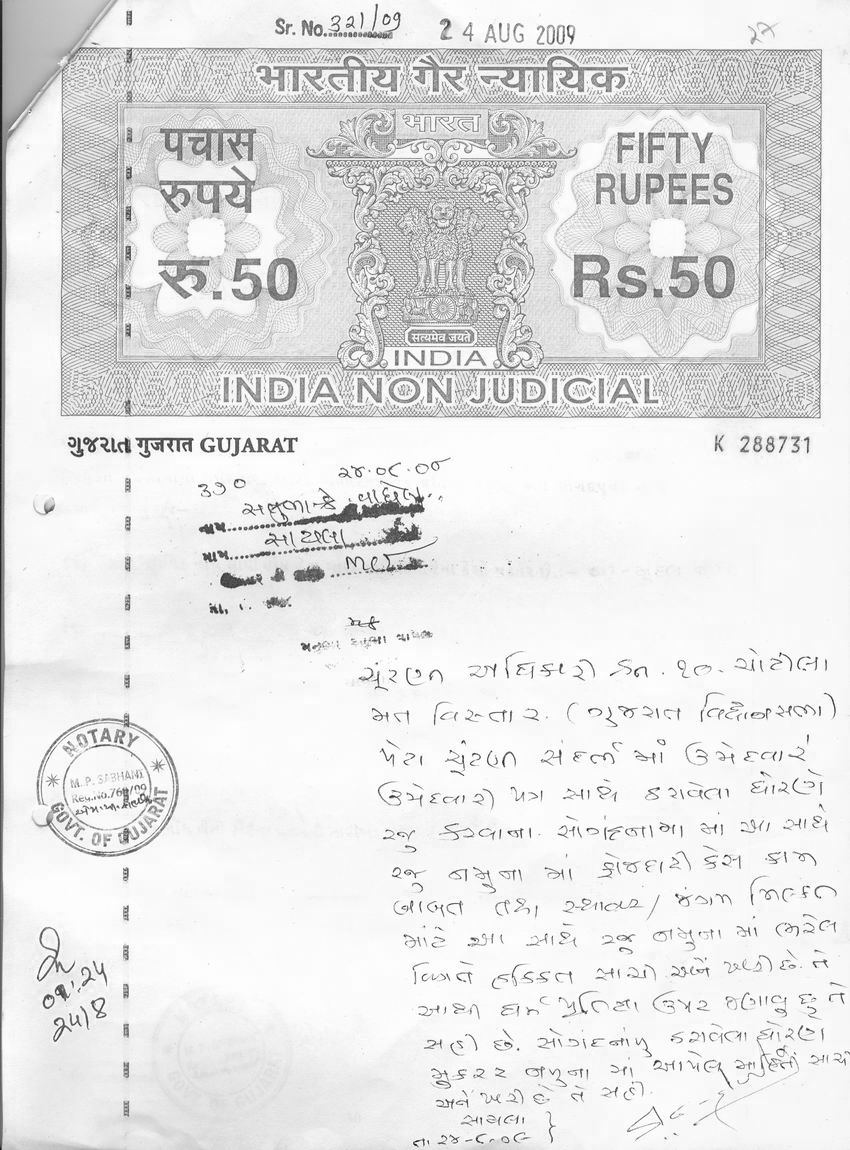 Sr. No. 321/09
24 AUG 2009
भारतीय गैर न्यायिक
भारत
पचास
रुपये
रु.50
FIFTY
RUPEES
Rs.50
सत्यमेव जयते
INDIA
INDIA NON JUDICIAL
ગુજરાત गुजरात GUJARAT
K 288731
નામ
ગામ સાયલા
ચૂંટણી અધિકારી ૬૦. ચોટીલા
મત વિસ્તાર. (ગુજરાત વિધાનસભા)
પેટા ચૂંટણી સંદર્ભ માં ઉમેદવારે
ઉમેદવારી પત્ર સાથે ઠરાવેલા ધોરણે
રજુ કરવાના સોગંદનામા માં આ સાથે
રજુ નમુના માં ફોજદારી કેસ કામ
બાબત તથા સ્થાવર/જંગમ મિલ્કત
માટે આ સાથે રજુ નમુના માં ભરેલ
વિગતે હકિકત સાચી અને ખરી છે. તે
આથી ધર્મ પ્રતિજ્ઞા ઉપર જણાવુ છુ તે
સહી છે. સોગંદનામુ ઠરાવેલા ધોરણે
મુકરર નમુના માં આપેલ માહિતી સાચી
અને ખરી છે તે સહી.
સાયલા
તા ૨૪-૮-૦૯
NOTARY
M.P. SABHANI
GOVT. OF GUJARAT
24/8